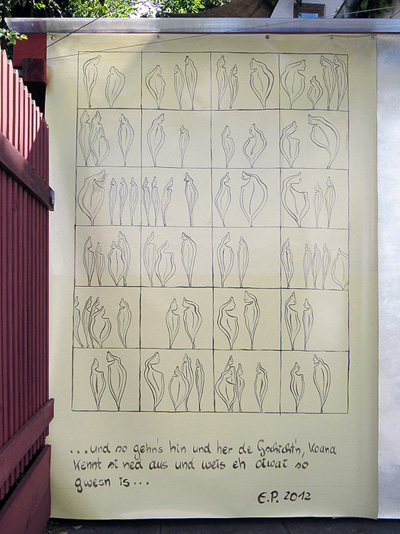 ...und so gehn's hin und her de Gschicht'n, koana
kennt si ned aus und weis eh etwat so
gwesn is...
E.P. 2012